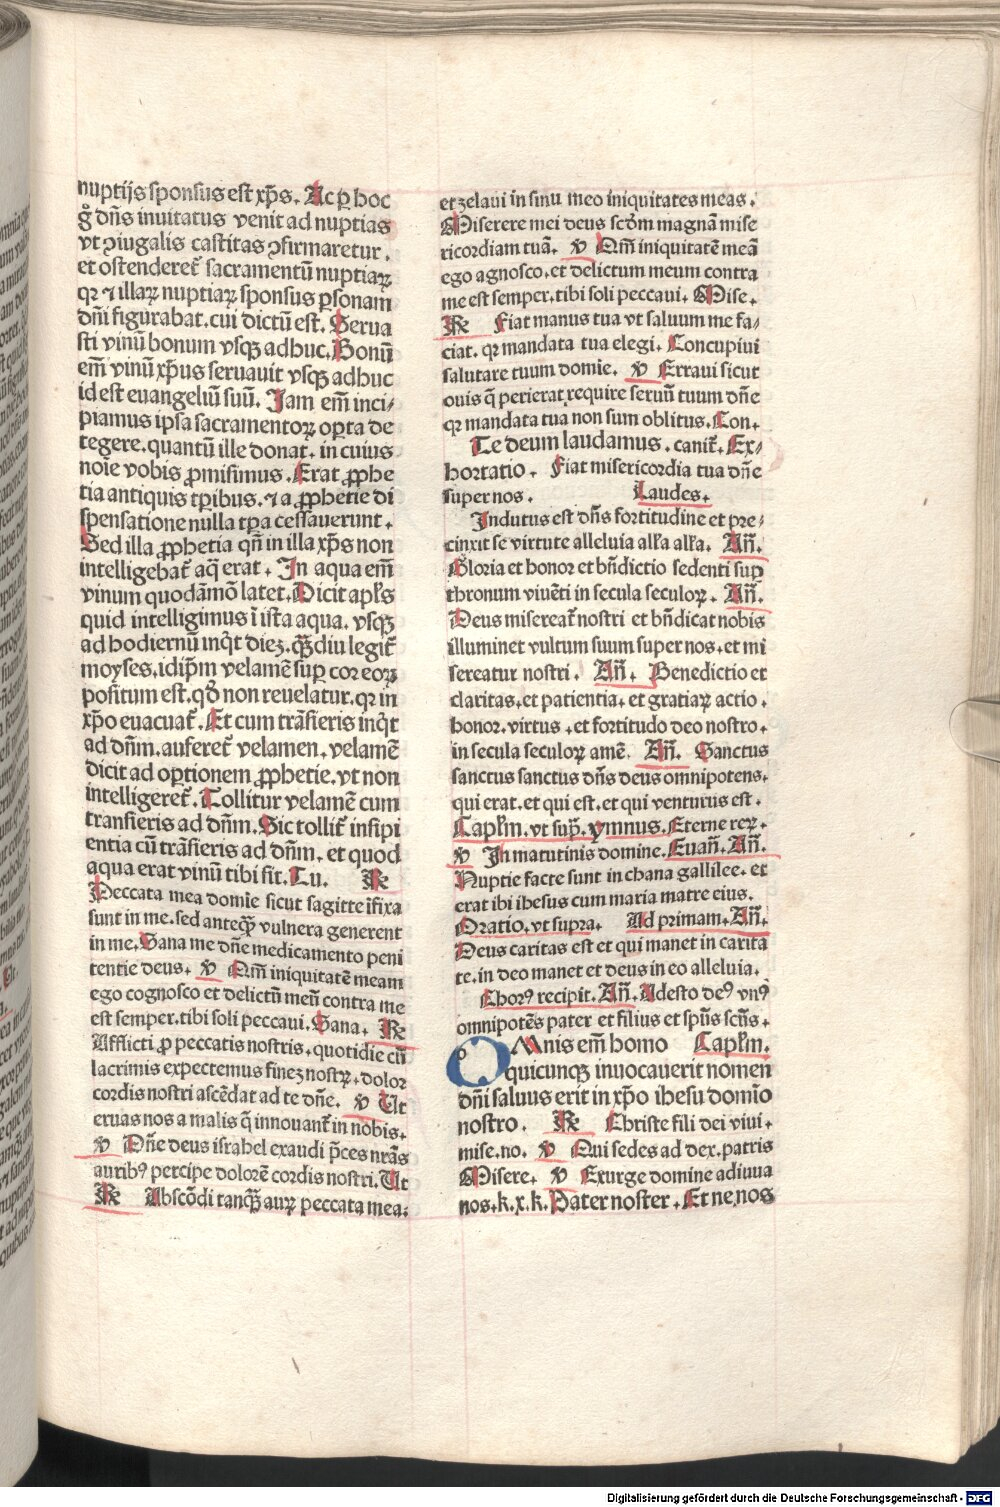 nuptijs sponsus est xp̄s. Ac ꝑ hoc
g̊ dn̄s inuitatus venit ad nuptias
vt ꝯiugalis castitas ꝯfirmaretur.
et ostenderet᷑ sacramentū nuptiaꝝ
qꝛ ⁊ illaꝝ nuptiaꝝ sponsus ꝑsonam
dn̄i figurabat. cui dictū est. Serua
sti vinū bonum vsqꝫ adhuc. Bonū
em̄ vinū xp̄us seruauit vsqꝫ adhuc
id est euangeliū suū. Jam em̄ inci
piamus ipsa sacramentoꝝ oꝑta de
tegere. quantū ille donat. in cuius
noīe vobis ꝓmisimus. Erat ꝓphe
tia antiquis tꝑibus. ⁊ a ꝓphetie di
spensatione nulla tp̄a cessauerunt.
Sed illa ꝓphetia qn̄ in illa xp̄s non
intelligebat᷑ aq̄ erat. In aqua em̄
vinum quodāmō latet. Dicit apl̄s
quid intelligimus ī ista aqua. vsqꝫ
ad hodiernū inqͥt diez. qꝫdiu legit᷑
moyses. idip̄m velamē suꝑ cor eoꝝ
positum est. qđ non reuelatur. qꝛ in
xp̄o euacuat᷑. Et cum trāsieris inqͥt
ad dn̄m. auferet᷑ velamen. velamē
dicit ad oꝑtionem ꝓphetie. vt non
intelligeret᷑. Tollitur velamē cum
transieris ad dn̄m. Sic tollit᷑ insipi
entia cū trāsieris ad dn̄m. et quod
aqua erat vinū tibi sit. Tu. ℟
Peccata mea domīe sicut sagitte īfixa
sunt in me. sed anteqꝫ vulnera generent
in me. Sana me dn̄e medicamento peni
tentie deus. ℣ Qm̄ iniquitatē meam
ego cognosco et delictū meū contra me
est semper. tibi soli peccaui. Sana. ℟
Afflicti ꝓ peccatis nostris. quotidie cū
lacrimis expectemus finez nostꝝ. dolor
cordis nostri ascēdat ad te dn̄e. ℣ Ut
eruas nos a malis q̄ innouant᷑ in nobis.
℣ Dn̄e deus israhel exaudi p̄ces nrās
auribꝰ percipe dolorē cordis nostri. Ut
℟ Abscōdi tanqꝫ auꝝ peccata mea.
et zelaui in sinu meo iniquitates meas.
Miserere mei deus scđm magnā mise
ricordiam tuā. ℣ Qm̄ iniquitatē meā
ego agnosco. et delictum meum contra
me est semper. tibi soli peccaui. Mise.
℟ Fiat manus tua vt saluum me fa/
ciat. qꝛ mandata tua elegi. Concupiui
salutare tuum domīe. ℣ Erraui sicut
ouis q̄ perierat require seruū tuum dn̄e
qꝛ mandata tua non sum oblitus. Con.
Te deum laudamus. canit᷑. Ex/
hortatio. Fiat misericordia tua dn̄e
super nos. Laudes.
Indutus est dn̄s fortitudine et pre/
cinxit se virtute alleluia all̄a all̄a. An̄.
Gloria et honor et bn̄dictio sedenti suꝑ
thronum viuēti in secula seculoꝝ. An̄.
Deus misereat᷑ nostri et bn̄dicat nobis
illuminet vultum suum super nos. et mi
sereatur nostri. An̄. Benedictio et
claritas. et patientia. et gratiaꝝ actio.
honor. virtus. et fortitudo deo nostro.
in secula seculoꝝ amē. An̄. Sanctus
sanctus sanctus dn̄s deus omnipotens.
qui erat. et qui est. et qui venturus est.
Capl̄m. vt suṗ. ymnus. Eterne reꝝ.
℣ In matutinis domine. Euan̄. An̄.
Nuptie facte sunt in chana gallilee. et
erat ibi ihesus cum maria matre eius.
Oratio. vt supra. Ad primam. An̄.
Deus caritas est et qui manet in carita
te. in deo manet et deus in eo alleluia.
Chorꝰ recipit. An̄. Adesto deꝰ vnꝰ
omnipotēs pater et filius et spūs scūs.
OMnis em̄ homo Capl̄m.
quicunqꝫ inuocauerit nomen
dn̄i saluus erit in xp̄o ihesu domīo
nostro. ℟ Christe fili dei viui.
mise. no. ℣ Qui sedes ad dex. patris
Misere. ℣ Exurge domine adiuua
nos. k. x. k. Pater noster. Et ne nos
Digitalisierung gefördert durch die Deutsche Forschungsgemeinschaft - DFG